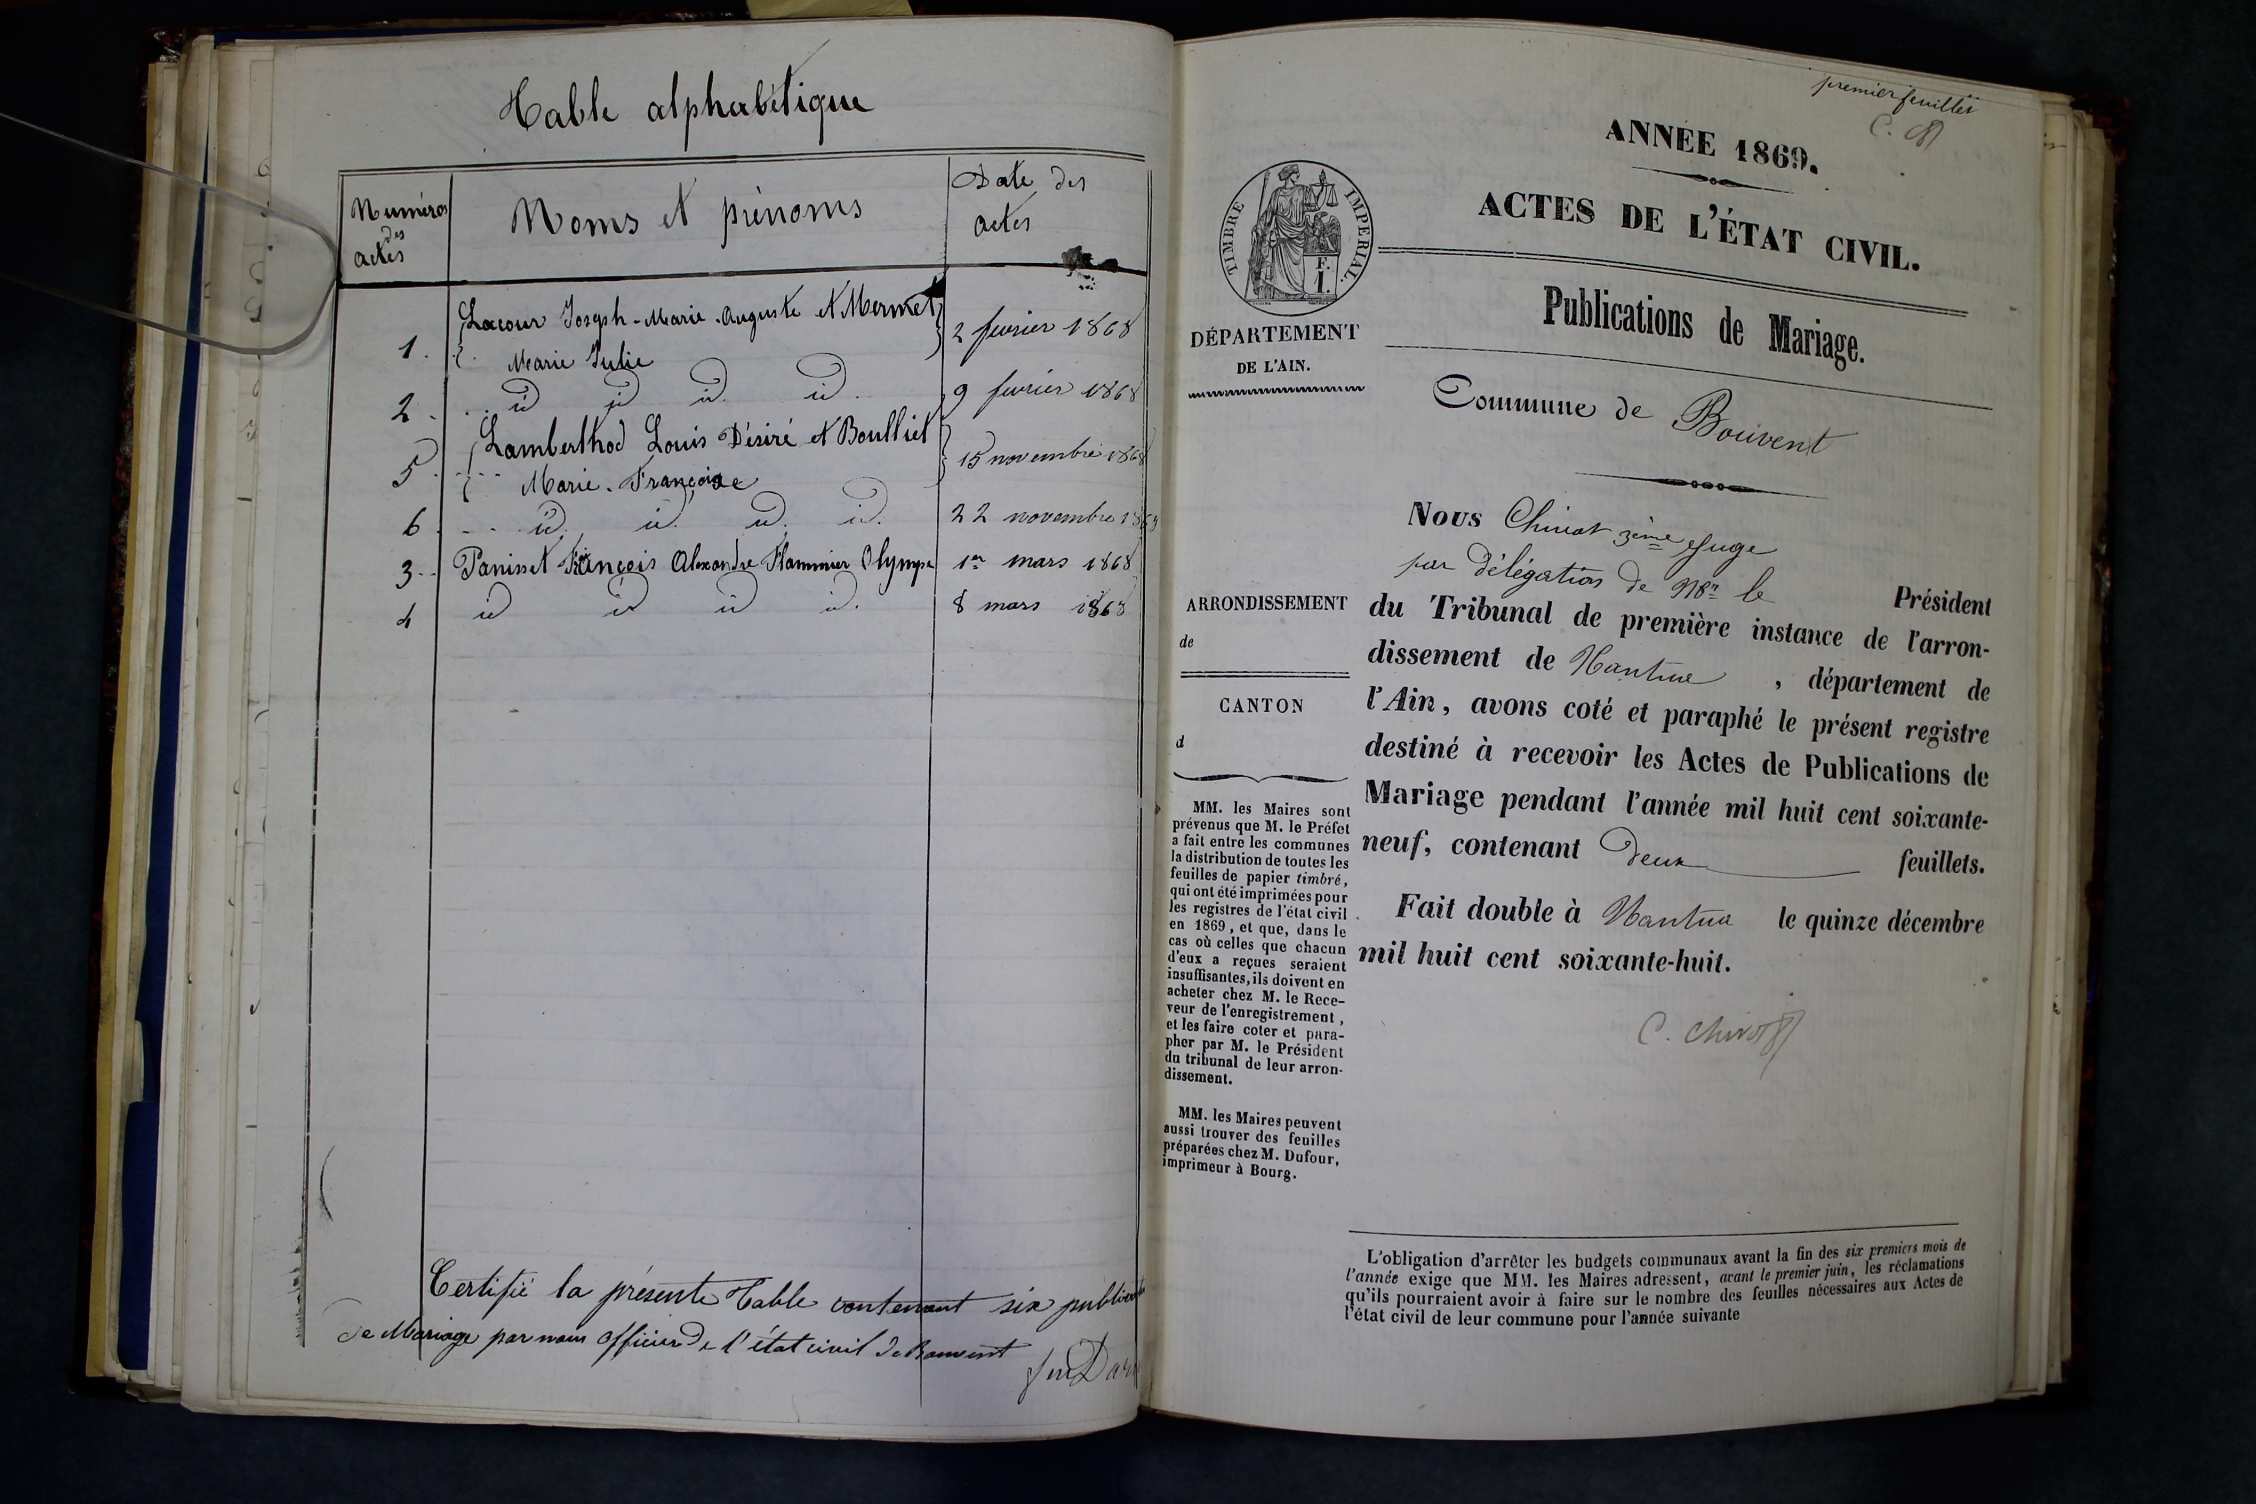 Table alphabétique
Numéros
des
actes
Noms et prénoms
Date des
actes
1. Lacour Joseph-Marie-Auguste et Mermet
Marie Julie
2 fevrier 1868
2. id id id id. 9 fevrier 1868
5. Lamberthod Louis Désiré et Boulliet
Marie-Françoise
15 novembre 1868
6. id. id. id. id. 22 novembre 1868
3. Panisset François Alexandre Flammier Olympe 1er mars 1868
4 id id id id. 8 mars 1868
Certifié la présente Table contenant six
de Mariage par nous Officier de l'état civil de Bouvent
premier feuillet
ANNÉE 1869.
ACTES DE L'ÉTAT CIVIL.
Publications de Mariage.
TIMBRE IMPERIAL.
F.
1.
DÉPARTEMENT
DE L'AIN.
Commune de Bouvent
Nous Chirat 3ème Juge
par délégation de Mr. le Président
du Tribunal de première instance de l'arron-
dissement de Nantua, département de
l'Ain, avons coté et paraphé le présent registre
destiné à recevoir les Actes de Publications de
Mariage pendant l'année mil huit cent soixante-
neuf, contenant deux feuillets.
Fait double à Nantua le quinze décembre
mil huit cent soixante-huit.
ARRONDISSEMENT
de
CANTON
d
MM. les Maires sont
prévenus que M. le Préfet
a fait entre les communes
la distribution de toutes les
feuilles de papier timbré,
qui ont été imprimées pour
les registres de l'état civil
en 1869, et que, dans le
cas où celles que chacun
d'eux a reçues seraient
insuffisantes, ils doivent en
acheter chez M. le Rece-
veur de l'enregistrement,
et les faire coter et para-
pher par M. le Président
du tribunal de leur arron-
dissement.
MM. les Maires peuvent
aussi trouver des feuilles
préparées chez M. Dufour,
imprimeur à Bourg.
L'obligation d'arrêter les budgets communaux avant la fin des six premiers mois de
l'année exige que MM. les Maires adressent, avant le premier juin, les réclamations
qu'ils pourraient avoir à faire sur le nombre des feuilles nécessaires aux Actes de
l'état civil de leur commune pour l'année suivante